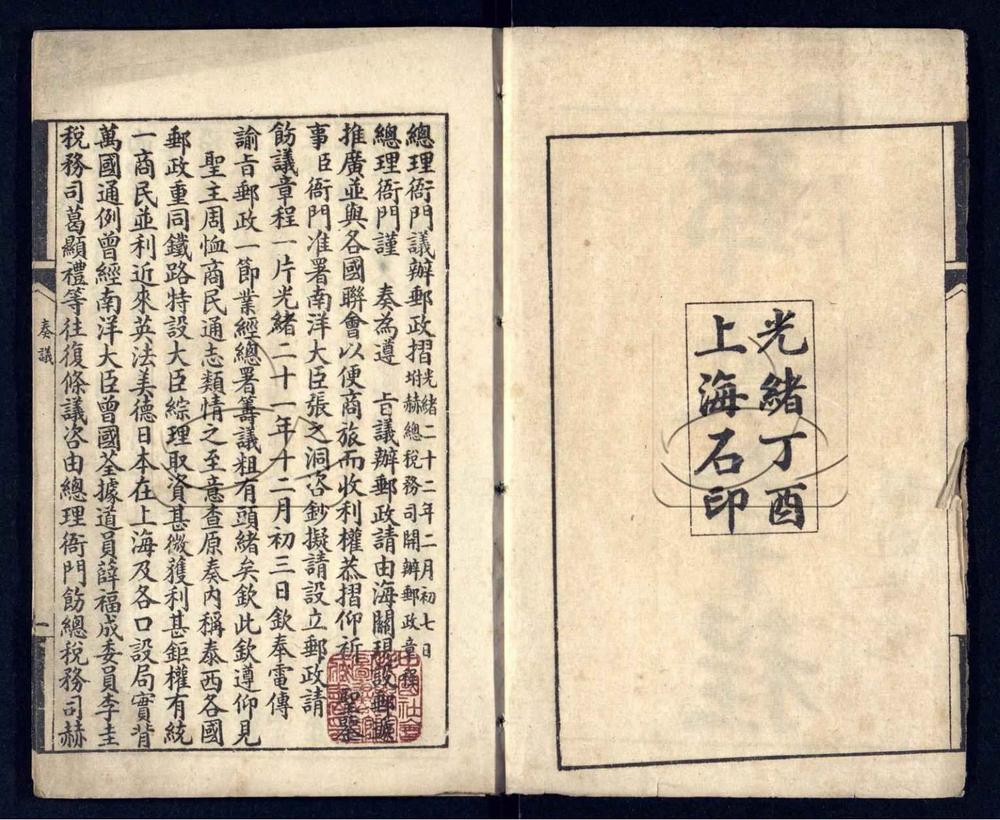 光緒丁酉
上海石印
總理衙門議辦郵政摺光緒二十二年二月初七日
附赫總稅務司開辦郵政章程
總理衙門謹 奏為遵 旨議辦郵政請由海關現設郵遞
推廣並與各國聯會以便商旅而收利權恭摺仰祈 聖鑒
事臣衙門准署南洋大臣張之洞咨鈔擬請設立郵政請
飭議章程一片光緒二十一年十二月初三日欽奉電傳
諭旨郵政一節業經總署籌議粗有頭緒矣欽此欽遵仰見
聖主周恤商民通志類情之至意查原奏內稱泰西各國
郵政重同鐵路特設大臣綜理取資甚微獲利甚鉅權有統
一商民並利近來英法美德日本在上海及各口設局實背
萬國通例曾經南洋大臣曾國荃據道員薛福成委員李圭
稅務司葛顯禮等往復條議咨由總理衙門飭總稅務司赫
奏議
一